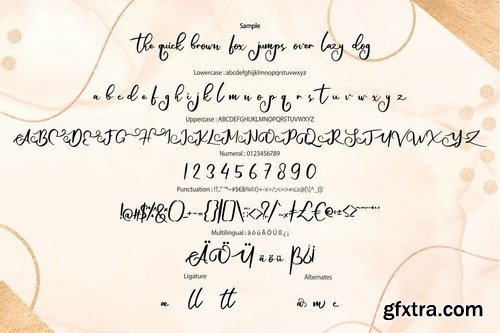 Sample
the quick brown fox jumps over lazy dog
Lowercase : abcdefghijklmnopqrstuvwxyz
a b c d e f g h i j k l m n o p q r s t u v w x y z
Uppercase : ABCDEFGHIJKLMNOPQRSTUVWXYZ
A B C D E F G H I J K L M N O P Q R S T U V W X Y Z
Numeral : 0123456789
1 2 3 4 5 6 7 8 9 0
Multilingual : ä ö ü Ä Ö Ü ß ¿ ¡
Ä Ö Ü ä ö ü ß ¿ ¡
Ligature Alternates
ll tt a w c
gfxtra.com